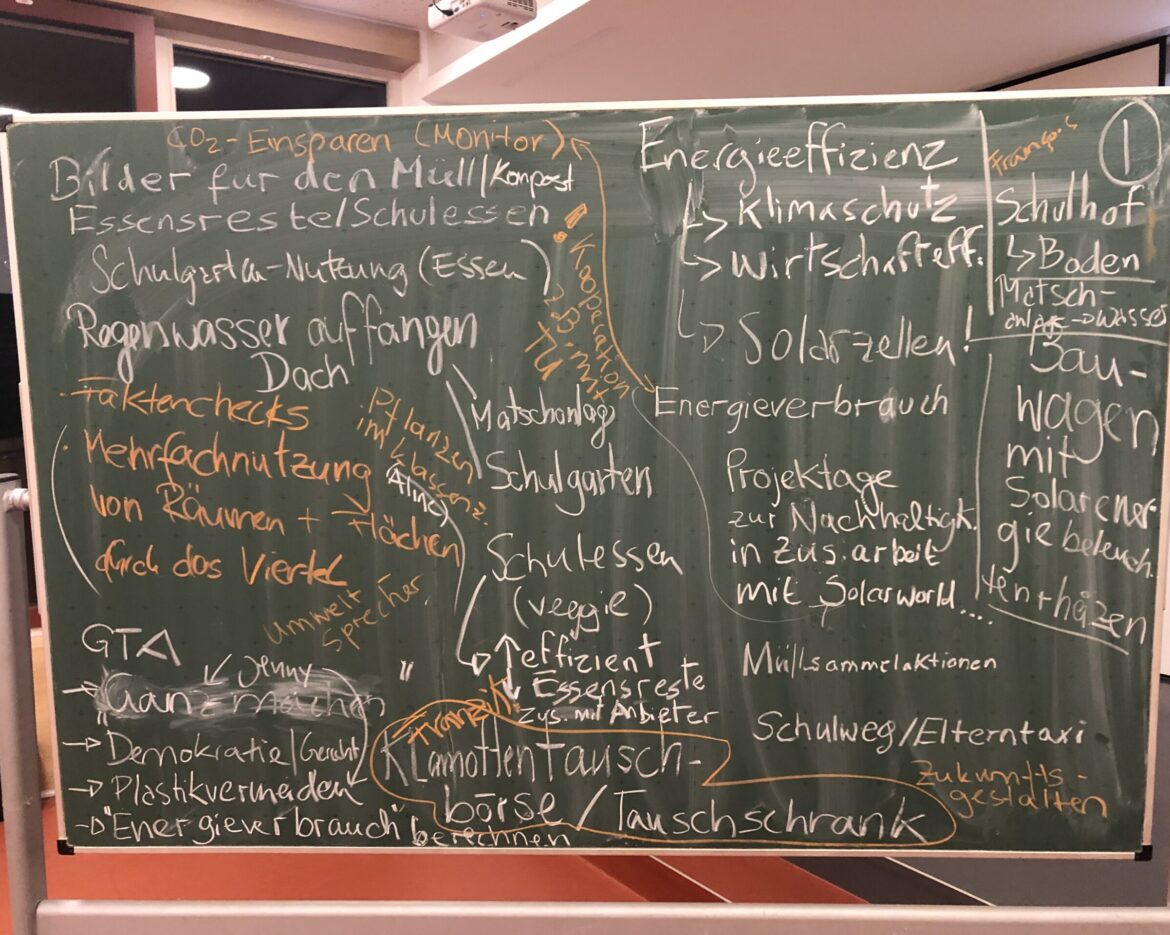 CO2-Einsparen (Monitor)
Bilder für den Müll/Kompost
Essensreste/Schulessen
Schulgarten-Nutzung (Essen)
Regenwasser auffangen
Dach
! Kooperation
z.B. mit
TU
Faktenchecks
Mehrfachnutzung
von Räumen + Flächen
durch das Viertel
Pflanzen
im Klassenz.
(Alina)
Umwelt
sprecher
Matschanlage
Schulgarten
Schulessen
(veggie)
effizient
Essensreste
Zus. mit Anbieter
GTA
Jenny
"
→ Ganzmachen
"
→ Demokratie/Gericht
→ Plastikvermeiden
→ "Energieverbrauch" berechnen
Franzik.
Klamotten Tausch-
börse/Tauschschrank
Energieeffizienz
↳ Klimaschutz
↳ Wirtschafteff.
↳ Solarzellen!
Energieverbrauch
Projektage
zur Nachhaltigk.
in Zus.arbeit
mit Solarworld....
Müllsammelaktionen
Schulweg/Elterntaxi
Zukunfts-
gestalten
1
Schulhof
↳ Boden
Matsch-
anlage → Wasser
Bau-
wagen
mit
Solarener
gie beleuch.
ten + heizen